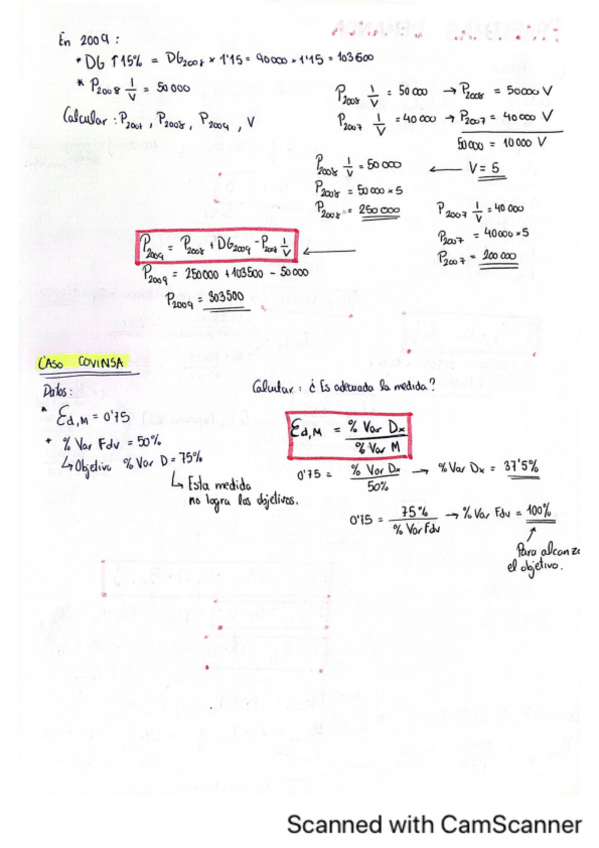 En 2009 :
* DG ↑ 15% = DG2008 x 1'15 = 90000 x 1'15 = 103500
* P2008 1/V = 50 000
Calcular : P2007 , P2008 , P2009 , V
P2008 1/V = 50 000 → P2008 = 50000 V
P2007 1/V = 40 000 → P2007 = 40 000 V
50 000 = 10 000 V
← V = 5
P2008 1/V = 50 000
P2008 = 50 000 x 5
P2008 = 250 000
P2007 1/V = 40 000
P2007 = 40000 x 5
P2007 = 200 000
P2009 = P2008 + DG2009 - P2008 1/V ←
P2009 = 250000 + 103500 - 50000
P2009 = 303500
CASO COVINSA
Datos :
* Ed,M = 0'75
* % Var Fdv = 50%
↳ Objetivo % Var D = 75%
↳ Esta medida
no logra los objetivos.
Calcular : ¿ Es adecuada la medida ?
Ed,M = % Var Dx / % Var M
0'75 = % Var Dx / 50% → % Var Dx = 37'5%
0'75 = 75% / % Var Fdv → % Var Fdv = 100%
Para alcanza
el objetivo.
Scanned with CamScanner